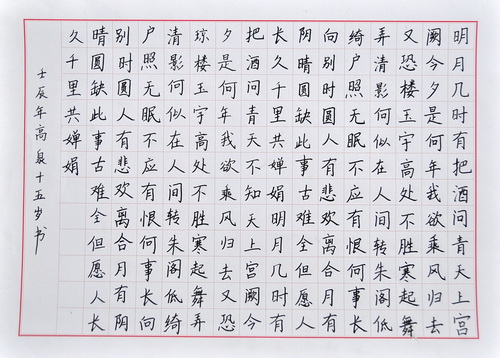 明月几时有把酒问青天上宫
阙今夕是何年我欲乘风归去
又恐楼玉宇高处不胜寒起舞
弄清影何似在人间转朱阁低
绮户照无眠不应有恨何事长
向别时圆人有悲欢离合月有
阴晴圆缺此事古难全但愿人
长久千里共婵娟明月几时有
把酒问青天不知天上宫阙今
夕是何年我欲乘风归去又恐
琼楼玉宇高处不胜寒起舞弄
清影何似在人间转朱阁低绮
户照无眠不应有恨何事长向
别时圆人有悲欢离合月有阴
晴圆缺此事古难全但愿人长
久千里共婵娟
壬辰年高十五岁书